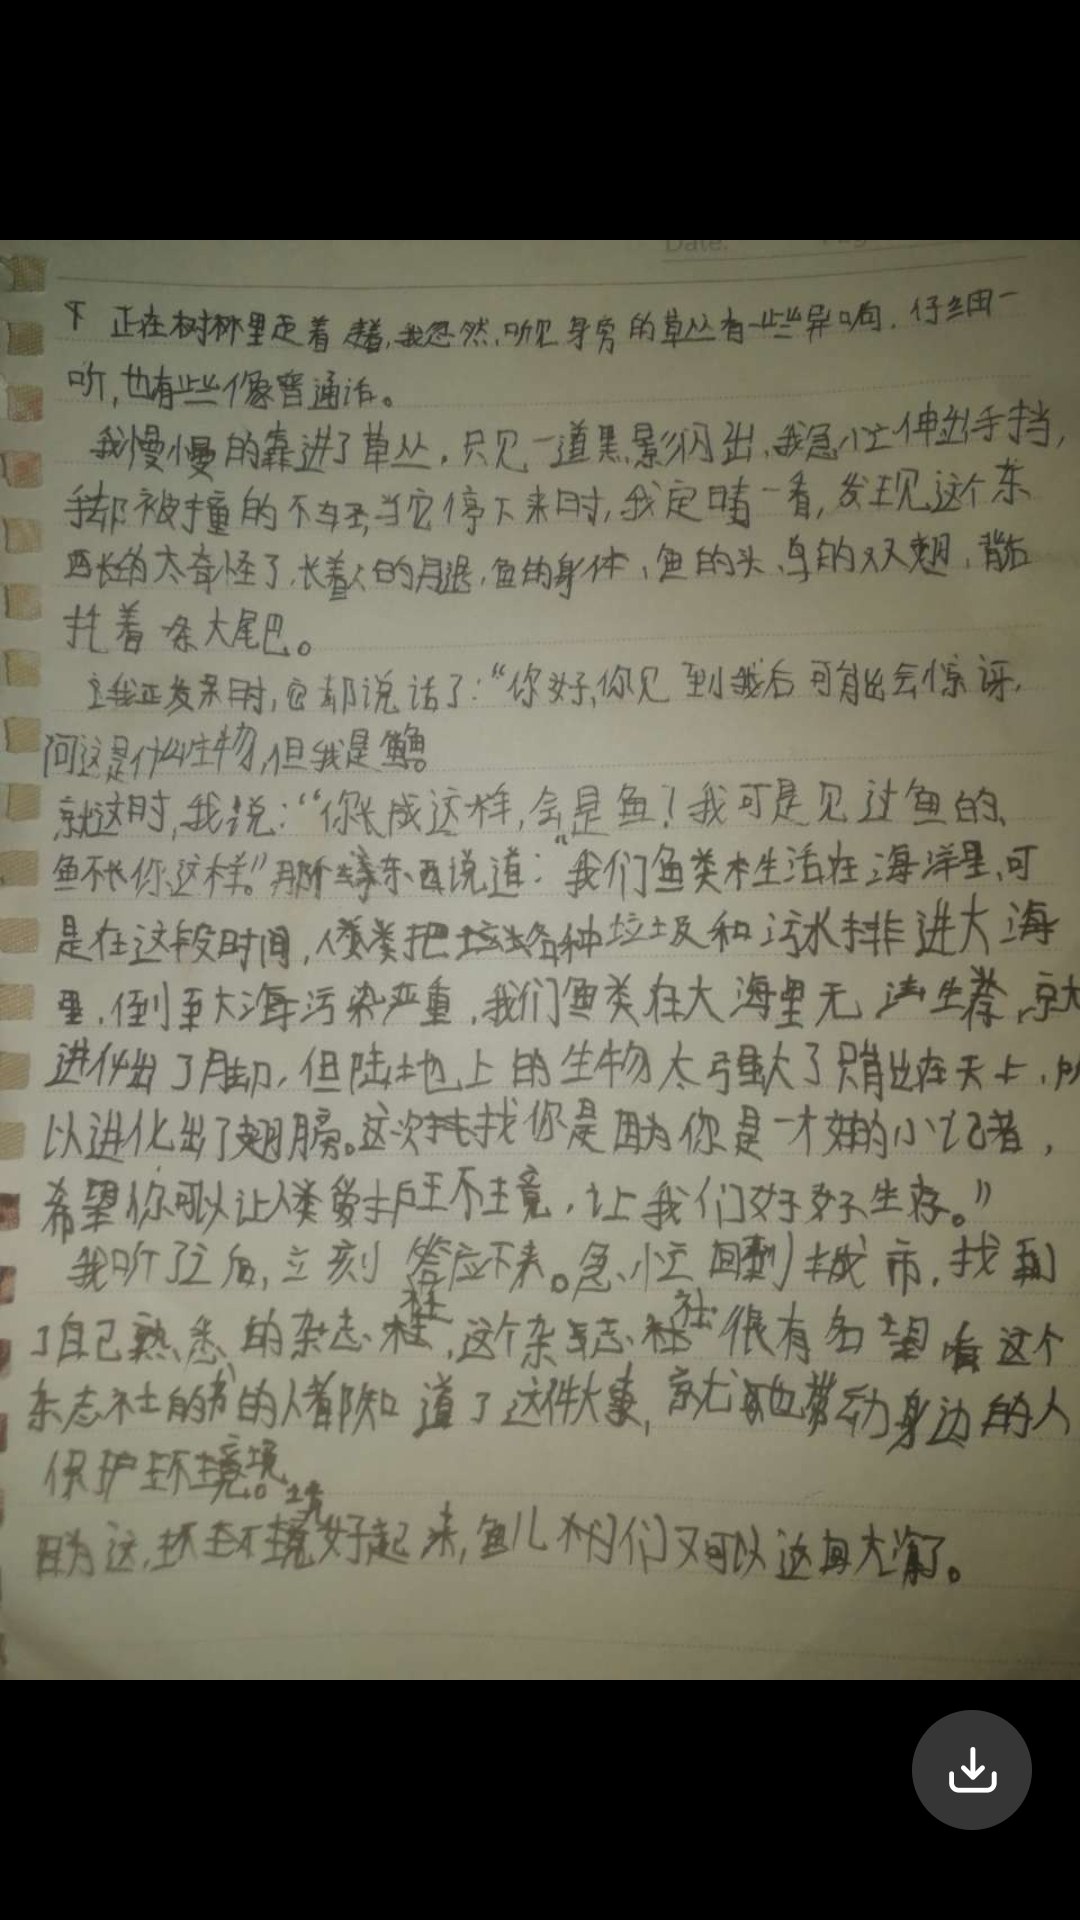 Date:
正在树林里走着走着,我忽然,听见身旁的草丛有一些异响,仔细一
听,也有些像普通话。
我慢慢的靠进了草丛,只见一道黑影闪出,我急忙伸出手挡,
手却被撞的不轻,当它停下来时,我定睛一看,发现这个东
西长的太奇怪了,长着人的腿,鱼的身体、鱼的头、鸟的双翅,背后
托着条大尾巴。
我正发呆时,它却说话了:“你好,你见到我后可能会惊讶,
问这是什么生物,但我是鱼。
就这时,我说:“你长成这样,会是鱼?我可是见过鱼的、
鱼不长你这样。”那个东西说道:“我们鱼类本生活在海洋里,可
是在这段时间,人类把各种垃圾和污水排进大海
里,倒至大海污染严重,我们鱼类在大海里无法生存,就
进化出了脚,但陆地上的生物太强大了只能在天上,所
以进化出了翅膀。这次找你是因为你是一才的小记者,
希望你可以让人类爱护环境,让我们好好生存。”
我听了之后,立刻答应下来。急忙回到城市,找到
了自己熟悉的杂志社,这个杂志社很有名望看这个
杂志社的书的人都知道了这件大事,就也带动身边的人
保护环境。
因为这,环境好起来,鱼儿们又可以返回大海了。